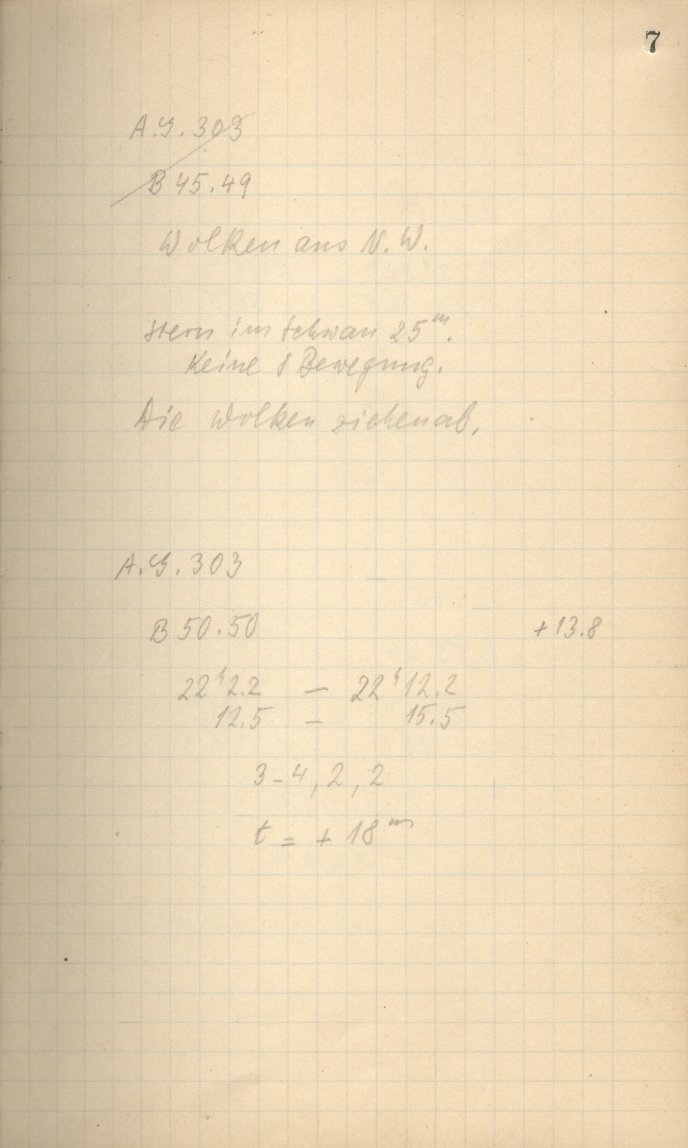 7
A.G. 303
B 45.49
Wolken aus N.W.
Stern im Schwan 25ᵐ.
Keine Bewegung.
Die Wolken ziehen ab.
A.G. 303
B 50.50 +13.8
22ʰ2.2 — 22ʰ12.2
12.5 — 15.5
3-4, 2, 2
t = + 18ᵐ